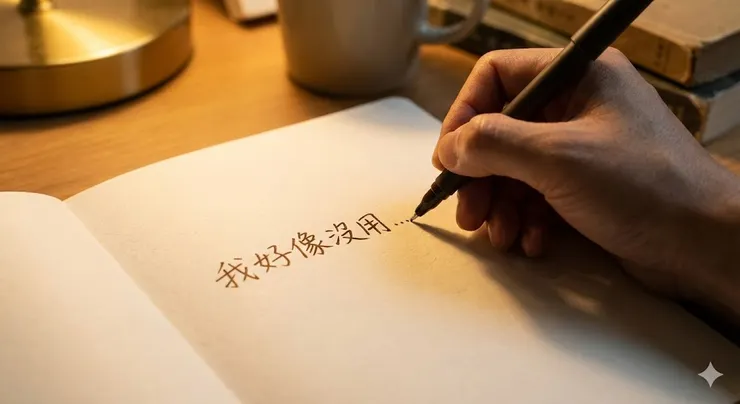 我好像沒用…